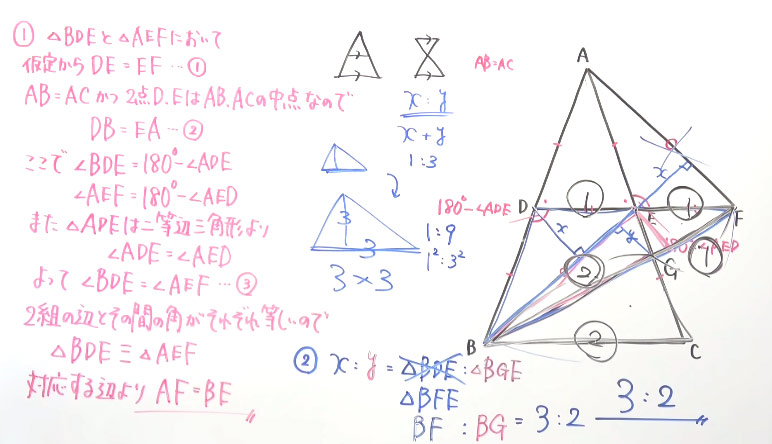 ① △BDEと△AEFにおいて
仮定から DE=EF…①
AB=ACかつ2点D.EはAB.ACの中点なので
DB=EA…②
ここで ∠BDE=180°-∠ADE
∠AEF=180°-∠AED
また△ADEは二等辺三角形より
∠ADE=∠AED
よって ∠BDE=∠AEF…③
2組の辺とその間の角がそれぞれ等しいので
△BDE≡△AEF
対応する辺より AF=BE
x:y
x+y
1:3
3
3
1:9
1²:3²
3×3
AB=AC
A
x
180°-∠ADE
D
1
E
1
F
x
y
2
G
4
B
2
C
② x:y=△BDE:△BGE
△BFE
BF:BG=3:2
3:2